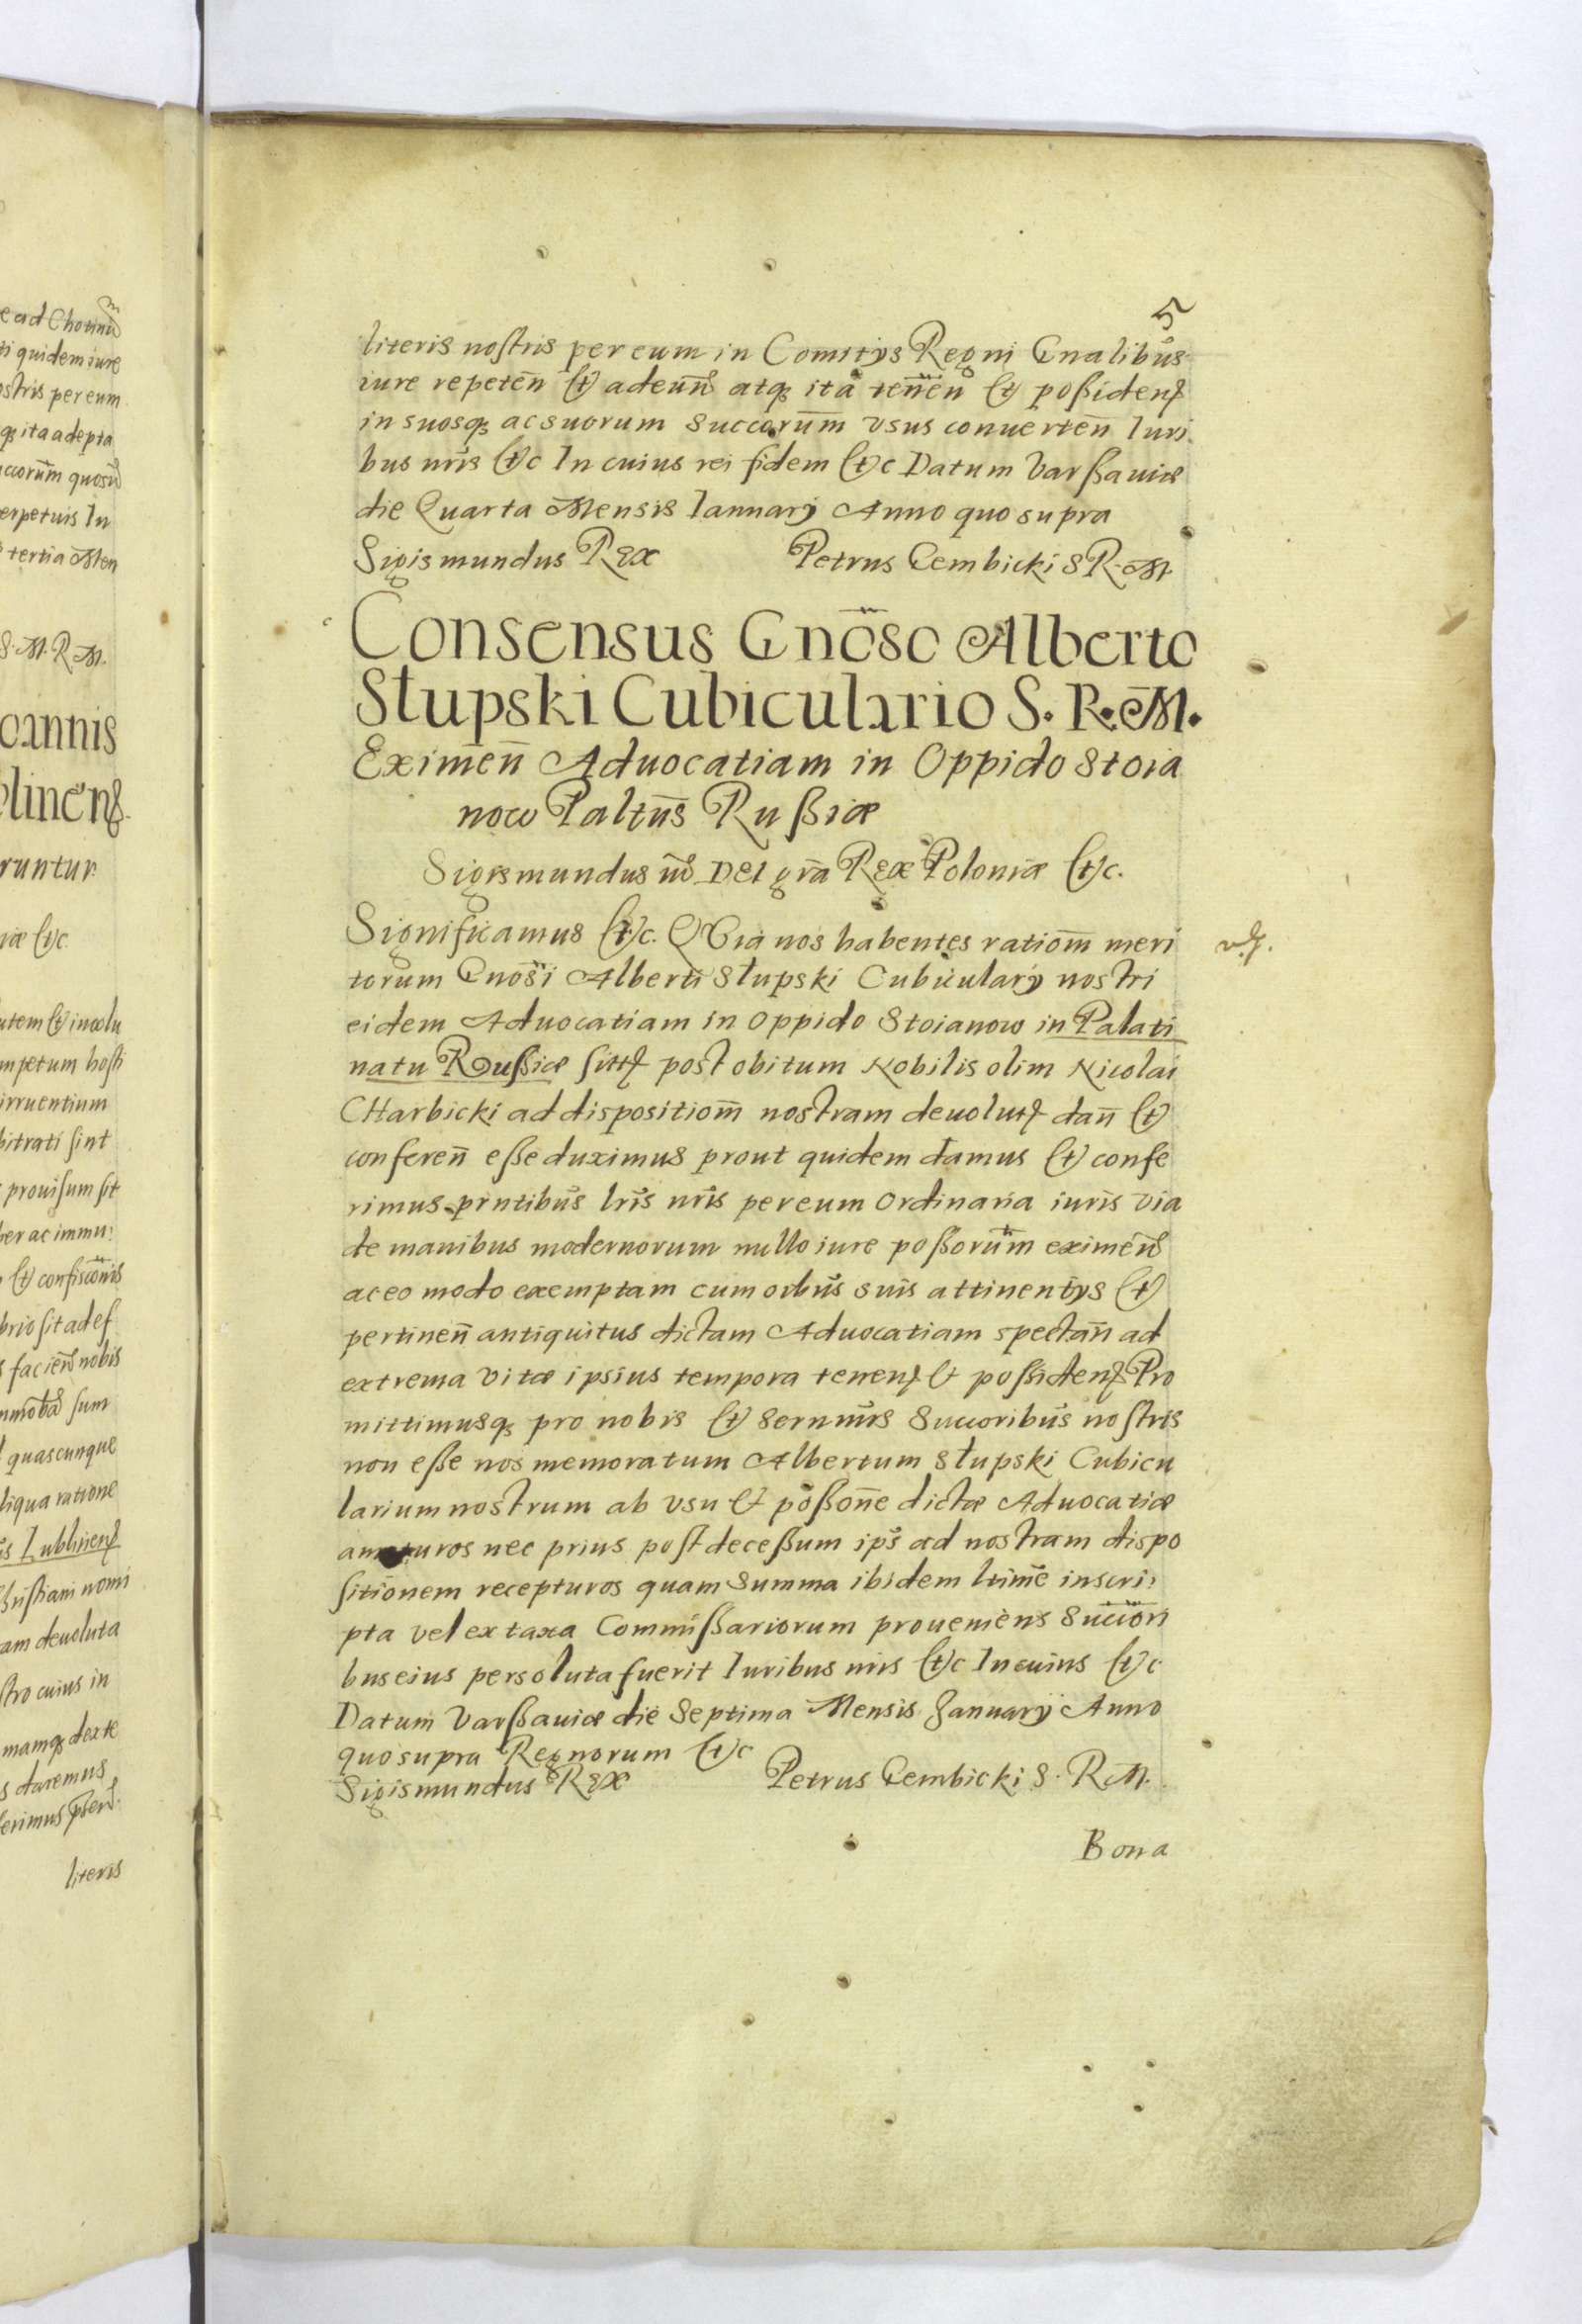 e ad Chotinū
ti quidem iure
ostris per eum
qȝ ita adepta
ccorūm quosū
erpetuis In
tertia Men
S. M. R. M.
oannis
blinenȝ.
runtur
iæ etc
utem et incolu
mpetum hosti
irruentium
bitrati sint
prouisum sit
ber ac immu:
et confiscōnis
brio sit adef
s facień nobis
sum
quascunque
liqua ratione
is Lublinenȝ
hristiani nomi
am deuoluta
stro cuius in
mamqȝ dexte
s daremus
ferimus
literis
5
literis nostris per eum in Comitÿs Regni Gnalibus
iure repeteñ et adeuñ atqȝ ita teneñ et poßidenȝ
in suosqȝ ac suorum Succorūm vsus conuerteñ Iuri
bus nrīs etc In cuius rei fidem etc Datum Varßauiæ
die Quarta Mensis Ianuarÿ Anno quo supra
Sigismundus Rex Petrus Gembicki S R. M.
Consensus Gnōso Alberto
Słupski Cubiculario S. R. M.
Eximeñ Aduocatiam in Oppido Stoia
now Paltūs Rußiæ
Sigismundus iii Dei grā Rex Poloniæ etc.
Significamus etc. QVia nos habentes rationm̄ meri
torum Gnōsi Alberti Słupski Cubicularÿ nostri
eidem Aduocatiam in oppido Stoianow in Palati
natu Rußiæ sitȝ post obitum Nobilis olim Nicolai
CHarbicki ad dispositiom̄ nostram deuolutȝ dañ et
confereñ eße duximus prout quidem damus et confe
rimus prntibus lrīs nrīs per eum ordinaria iuris via
de manibus modernorum nullo iure poßorūm eximeñ
ac eo modo exemptam cum oībus suis attinentÿs et
pertineñ antiquitus dictam Aduocatiam spectañ ad
extrema vitæ ipsius tempora tenenȝ et poßidenȝ Pro
mittimusqȝ pro nobis et Sernmīs Succoribus nostris
non eße nos memoratum Albertum Słupski Cubicu
larium nostrum ab vsu et poßonē dictæ Aduocatiæ
amoturos nec prius post deceßum ips̄ ad nostram dispo
sitionem recepturos quam Summa ibidem ltimē inscri:
pta vel ex taxa Commißariorum proueniens Succōri
bus eius persoluta fuerit Iuribus nrīs etc In cuius etc
Datum Varßauiæ die Septima Mensis Januarÿ Anno
quo supra Regnorum etc
Sigismundus Rex Petrus Gembicki S. R. M.
Bona